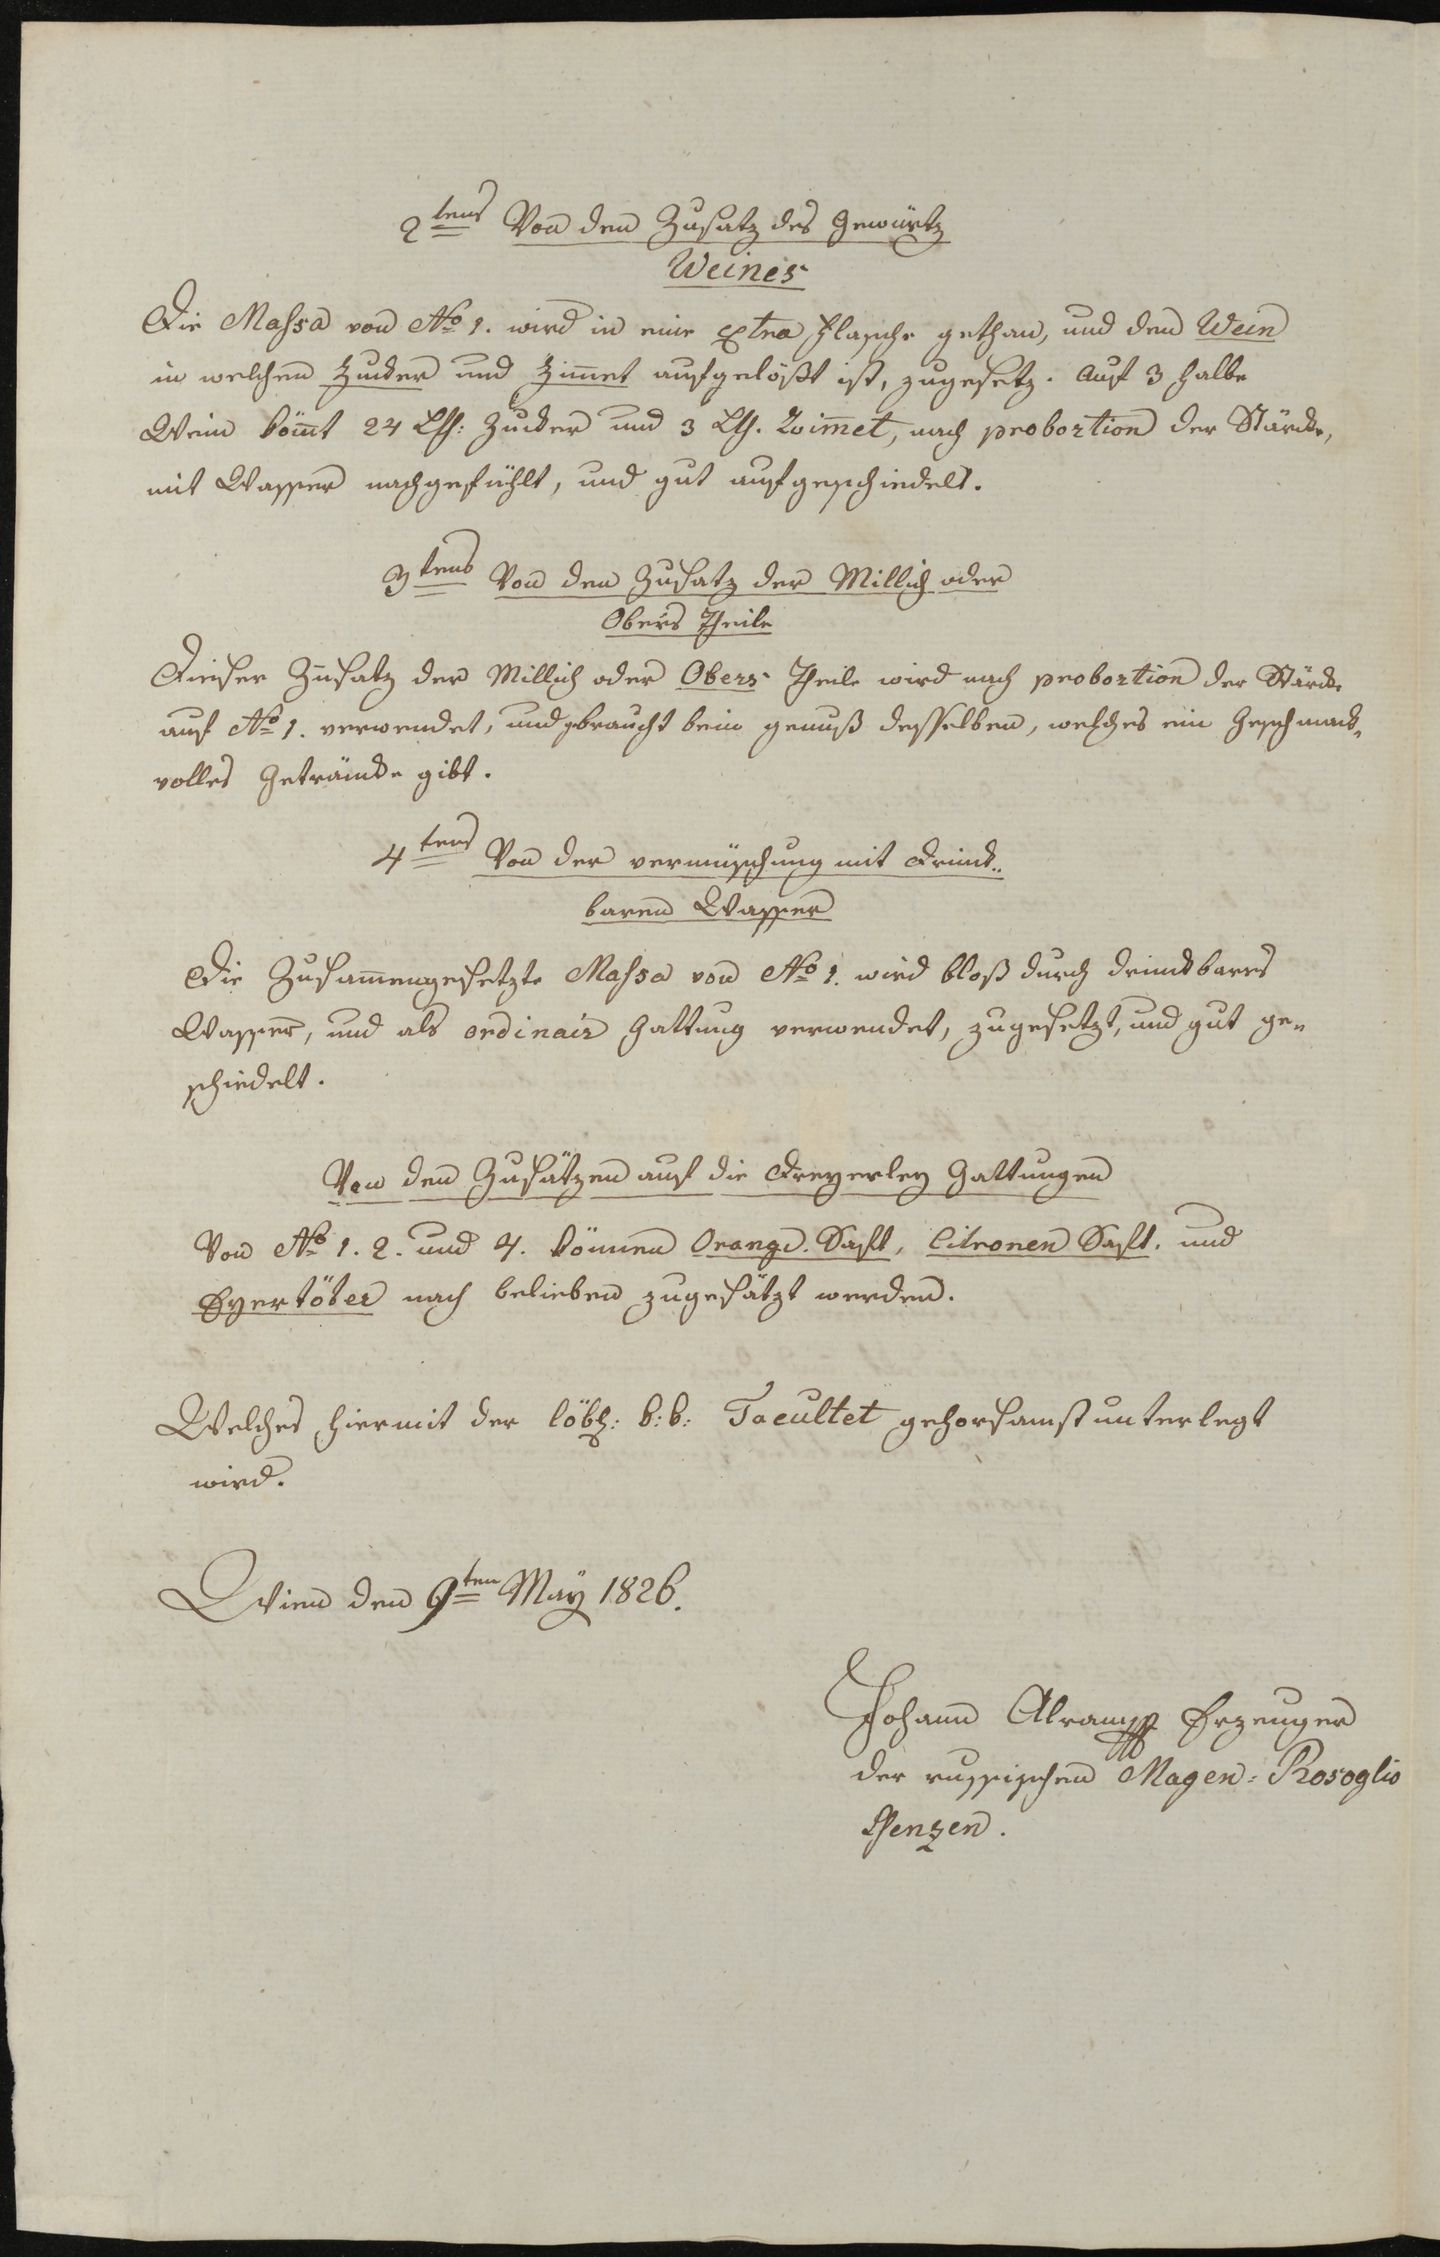 2tens Von den Zusatz des Gewürtz
Weines
Die Massa von No 1. wird in eine extra Flasche gethan, und den Wein
in welchen Zucker und Zim̅et aufgelößt ist, zugesetz. Auf 3 halbe
Wein köm̅t 24 Lth: Zucker und 3 Lth. Zwim̅et, nach probortion der Stärcke,
mit Wasser nachgefühlt, und gut aufgeschiedelt.
3tens Von den Zusatz der Millich oder
Obers Theile
Dieser Zusatz der Millich oder Obers Theile wird nach probortion der Stärcke
auf No 1. verwendet, und gebraucht beim genuß desselben, welches ein Geschmack„
volles Geträncke gibt.
4tens Von der vermischung mit Drinck„
baren Wasser
Die Zusam̅engesetzte Massa von No 1. wird bloß durch drinckbares
Wasser, und als ordinair Gattung verwendet, zugesetzt, und gut ge„
schiedelt.
Von den Zusätzen auf die Dreyerley Gattungen
Von No 1. 2. und 4. können Orange. Saft, Citronen Saft. und
Eyertöter nach belieben zugesätzt werden.
Welches hiermit der löbl: k: k: Facultet gehorsamst unterlegt
wird.
Wien den 9ten May 1826.
Johann Erzeuger
der russischen Magen=Rosoglio
Eßenzen.